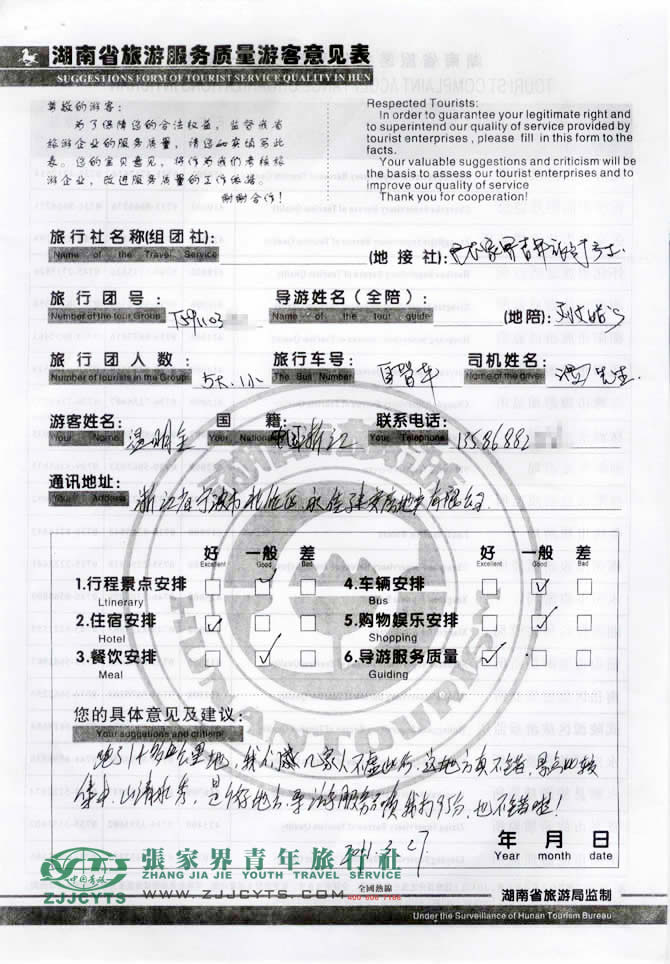 湖南省旅游服务质量游客意见表
SUGGESTIONS FORM OF TOURIST SERVICE QUALITY IN HUN
尊敬的游客:
为了保障您的合法权益,监督我省
旅游企业的服务质量,请您如实填写此
表。您的宝贝意见,将作为我们考核旅
游企业,改进服务质量的工作依据。
谢谢合作!
Respected Tourists:
In order to guarantee your legitimate right and
to superintend our quality of service provided by
tourist enterprises , please fill in this form to the
facts.
Your valuable suggestions and criticism will be
the basis to assess our tourist enterprises and to
improve our quality of service
Thank you for cooperation!
旅行社名称(组团社): (地接社): 张家界青年旅行社
Name of the Travel Service
旅行团号: 导游姓名(全陪): (地陪):
Number of the tour Group Name of the tour guide
旅行团人数: 5大1小 旅行车号: 自驾车 司机姓名: 温先生
Number of tourists in the Group The Bus Number Name of the driver
游客姓名: 温明金 国籍: 中国浙江 联系电话: 13586882
Your Name Your Nationa Your Telephone
通讯地址: 浙江省宁波市北仑区
Your Address
好 一般 差 好 一般 差
Excellent Good Bad Excellent Good Bad
1.行程景点安排 4.车辆安排
Ltinerary Bus
2.住宿安排 5.购物娱乐安排
Hotel Shopping
3.餐饮安排 6.导游服务质量
Meal Guiding
HUNAN TOURISM
您的具体意见及建议:
Your suggestions and critism
跑了1千多公里地,我们几家人不虚此行,这地方真不错,景点比较
集中,山清水秀,是个好地方,导游服务态度我打95分,也不错啦!
年 月 日
Year month date
中国青旅
ZJJCYTS
張家界青年旅行社
ZHANG JIA JIE YOUTH TRAVEL SERVICE
WWW.ZJJCYTS.COM
全國熱線
400-606-7166
湖南省旅游局监制
Under the Surveillance of Hunan Tourism Bureau